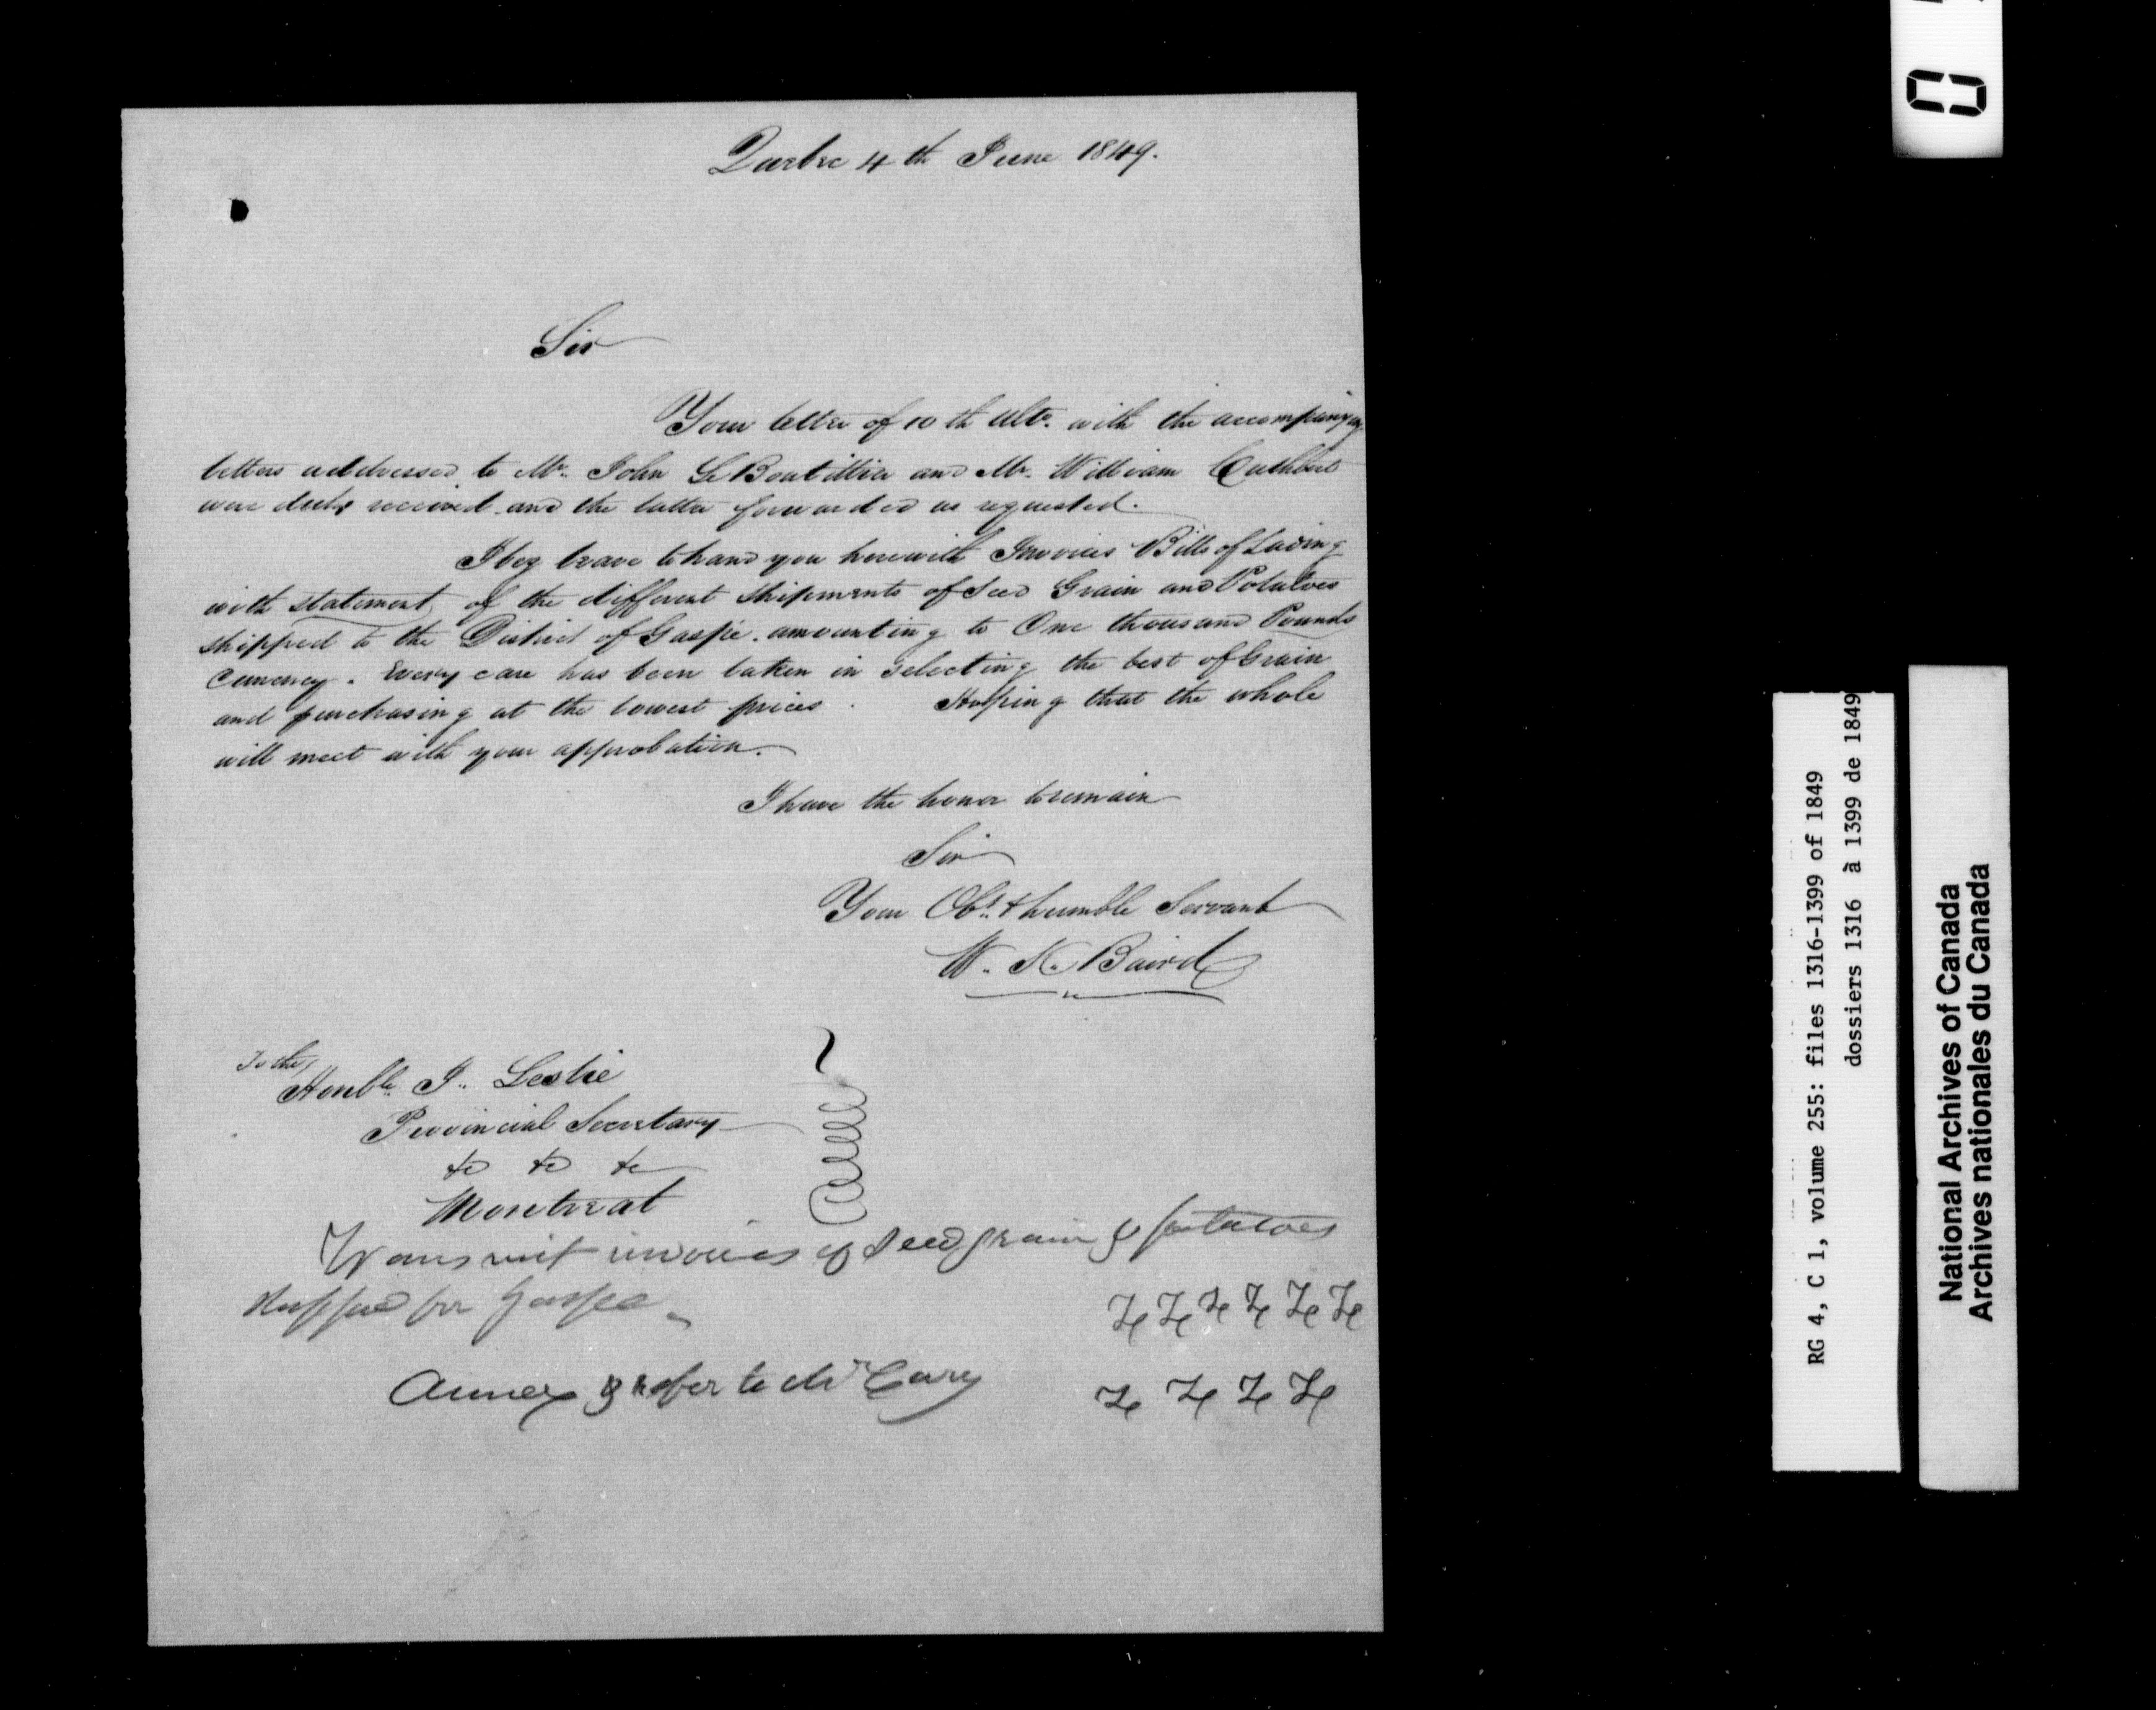 Quebec 4th June 1849.
Sir
Your letter of 10th ulto. with the accompanying
letters addressed to Mr. John Le Boutillier and Mr. William Cuthbert
were duly received and the latter forwarded as requested.
I beg leave to hand you herewith Invoices Bills of Lading
with statement of the different shipments of Seed Grain and Potatoes
shipped to the District of Gaspé. amounting to One thousand Pounds
Currency. Every care has been taken in selecting the best of Grain
and purchasing at the lowest prices. Hoping that the whole
will meet with your approbation.
I have the honor to remain
Sir
Your Obt. & humble Servant
W. K. Baird
To the
Honble. J. Leslie
Provincial Secretary
&c &c &c
Montreal
Transmit invoices of Seed grain & potatoes
shipped for Gaspe
Annex & refer to Mr Cary
RG 4, C 1, volume 255: files 1316-1399 of 1849
dossiers 1316 à 1399 de 1849
National Archives of Canada
Archives nationales du Canada